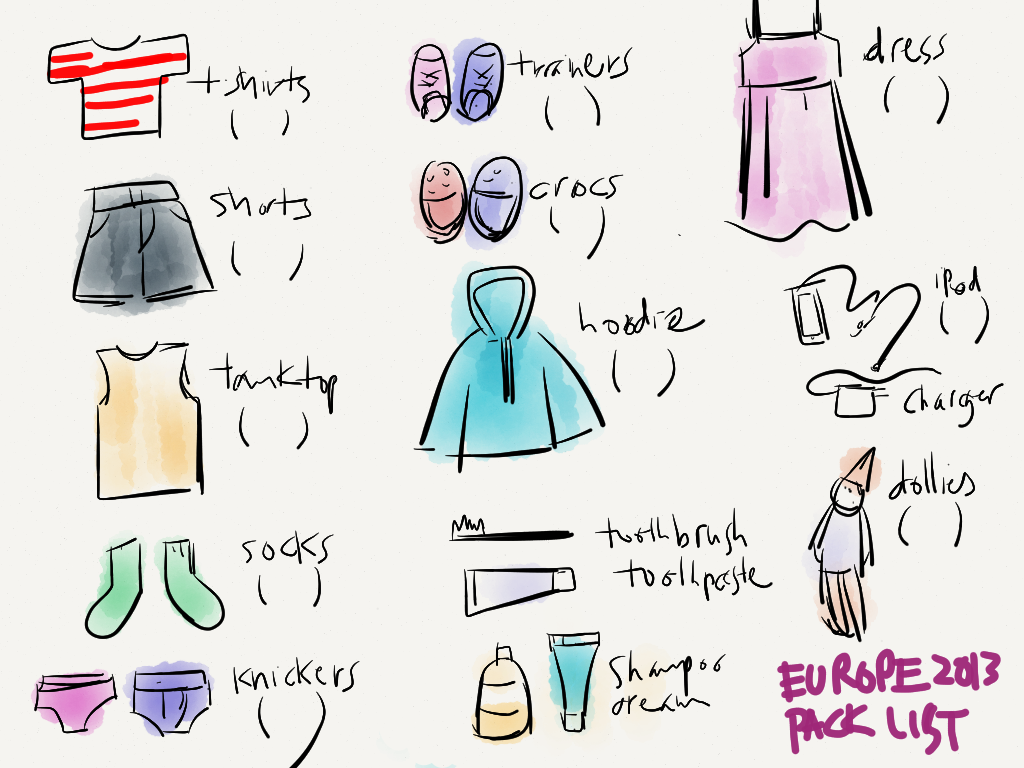 t-shirts
( )
shorts
( )
tanktop
( )
socks
( )
knickers
( )
trainers
( )
crocs
( )
hoodie
( )
toothbrush
toothpaste
shampoo
cream
dress
( )
iPod
( )
charger
dollies
( )
EUROPE 2013
PACK LIST